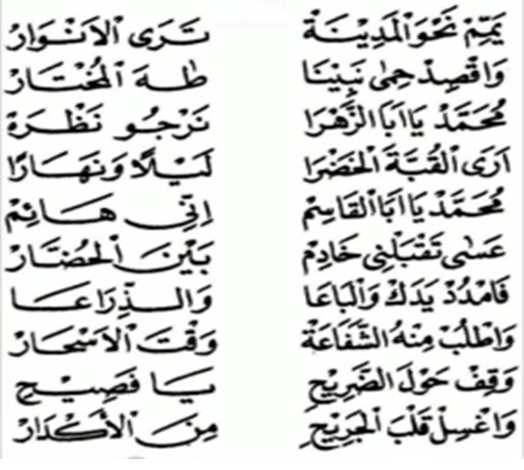 يَمِّمْ نَحْوَ الْمَدِينَةْ تَرَى الْاَنْوَارْ
وَاقْصِدْ حِمٰى نَبِيْنَا طٰهَ الْمُخْتَارْ
مُحَمَّدْ يَا اَبَا الزَّهْرَا نَرْجُو نَظْرَةْ
اَرَى الْقُبَّةَ الْخَضْرَا لَيْلًا وَنَهَارًا
مُحَمَّدْ يَا اَبَا الْقَاسِمْ اِنِّى هَائِمْ
عَسٰى تَقْبَلْنِى خَادِمْ بَيْنَ الْحُضَّارْ
فَامْدُدْ يَدَكْ وَالْبَاعَا وَالذِّرَاعَا
وَاطْلُبْ مِنْهُ الشَّفَاعَةْ وَقْتَ الْاَسْحَارْ
وَقِفْ حَوْلَ الضَّرِيْحِ يَا فَصِيْحِ
وَاغْسِلْ قَلْبَ الْجَرِيْحِ مِنَ الْأَكْدَارْ